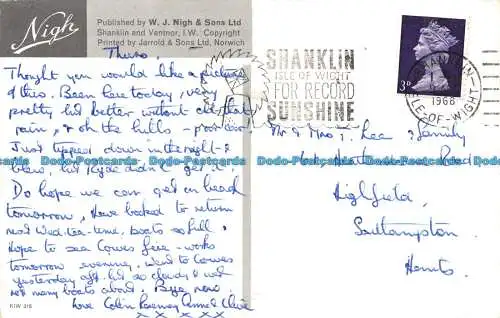 Nigh
Published by W. J. Nigh & Sons Ltd
Shanklin and Ventnor, I.W. Copyright
Printed by Jarrold & Sons Ltd, Norwich
Thurs.
Thought you would like a picture
of this. Been here today, very
pretty but better without all that
rain, & oh the hills -
Just tipped down in the night &
blew, but Ryde didn't get it!
Do hope we can get on beach
tomorrow, Have booked to return
next Wed. tea-time, boats so full.
Hope to see Cowes fire-works
tomorrow evening. Went to Cowes
yesterday aft. but so cloudy & wet
not many boats about. Bye now
Love Colin
x x x x x
KIW 316
SHANKLIN
ISLE OF WIGHT
FOR RECORD
SUNSHINE
SHANKLIN
1968
ISLE-OF-WIGHT
3D
Mr & Mrs T. Lee & family
Road
Highfield,
Southampton,
Hants.
Dodo-Postcards Dodo-Postcards Dodo-Postcards